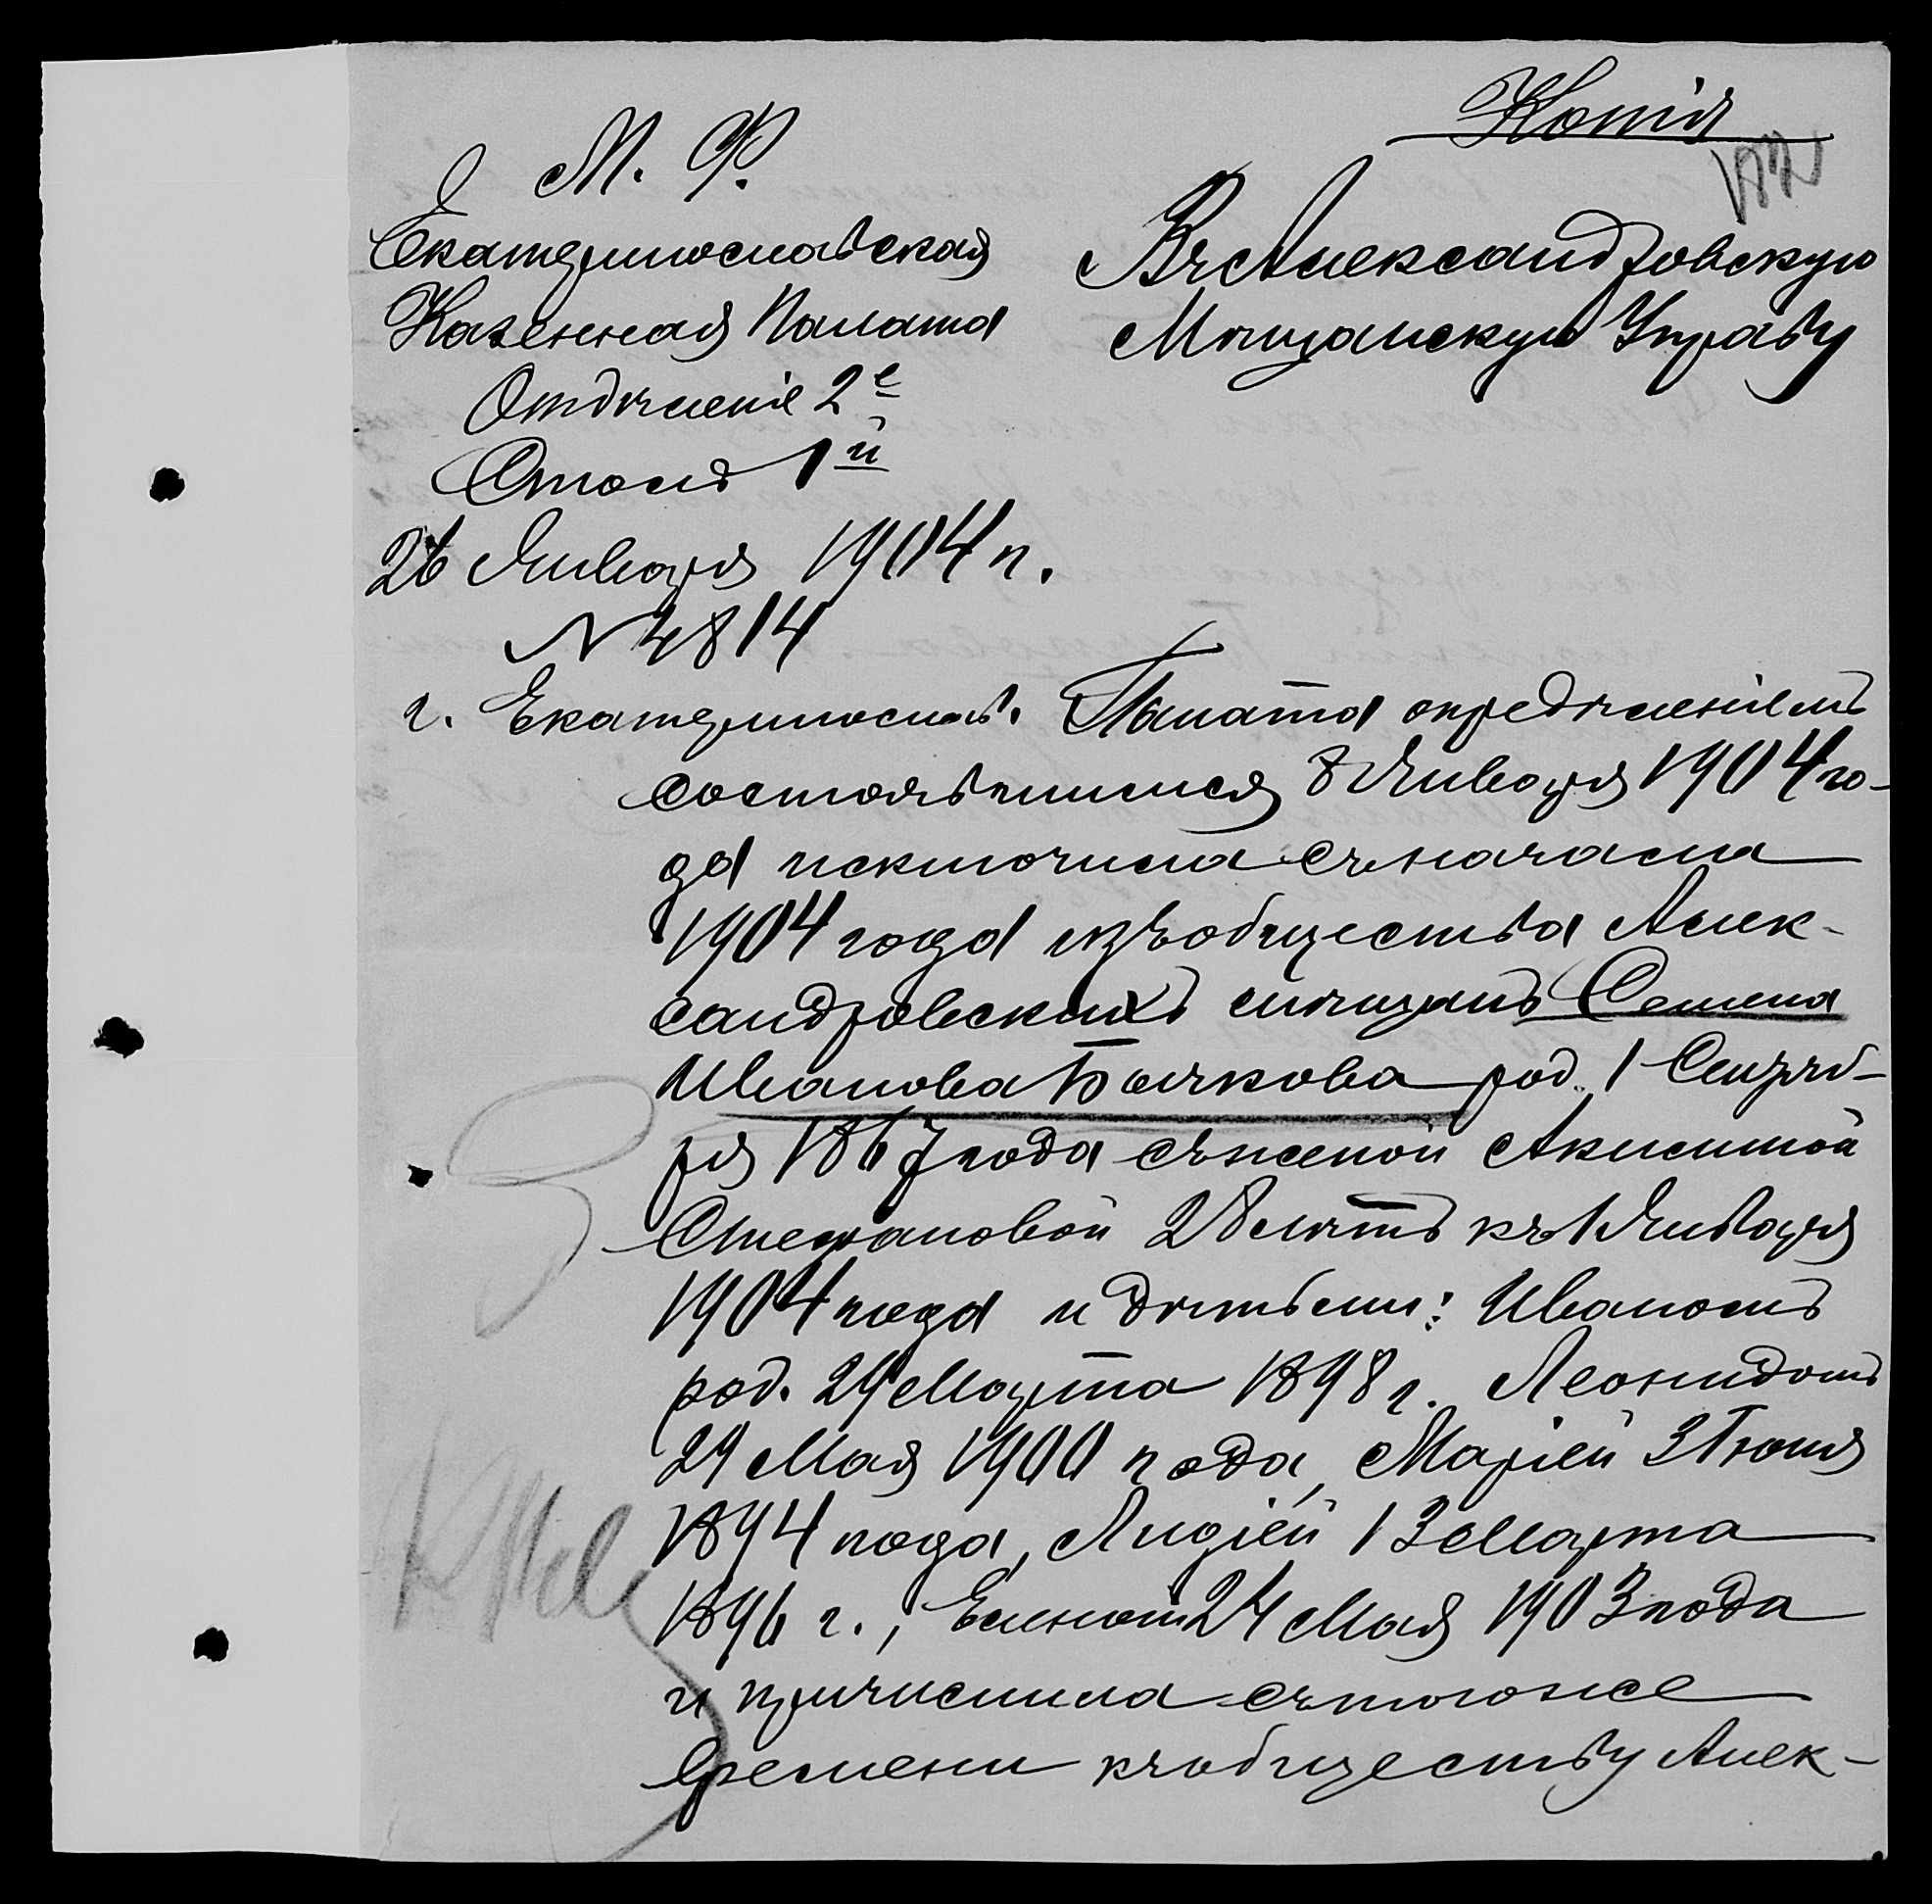 Копія
М. Ф.
Екатеринославская
Казенная Палата
Отдѣленіе 2е
Столъ 1й
26 Января 1904 г.
N 4814
г. Екатеринослав.
Въ Александровскую
Мѣщанскую Управу
Палата опредѣленіемъ
состоявшимся 8 Января 1904 го-
да исключила съ начала
1904 года изъ общества Алек-
сандровскихъ мѣщанъ Семена
Иванова Бычкова род. 1 Сентяб-
ря 1867 года съ женой Акилиной
Степановой 28 лѣтъ къ 1 Января
1904 года и дѣтьми: Иваномъ
род. 29 Марта 1898 г. Леонидомъ
29 Мая 1900 года, Маріей 3 Іюня
1894 года, Лидіей 13 Марта
1896 г., Еленой 24 Мая 1903 года
и причислила съ того же
времени къ обществу Алек-